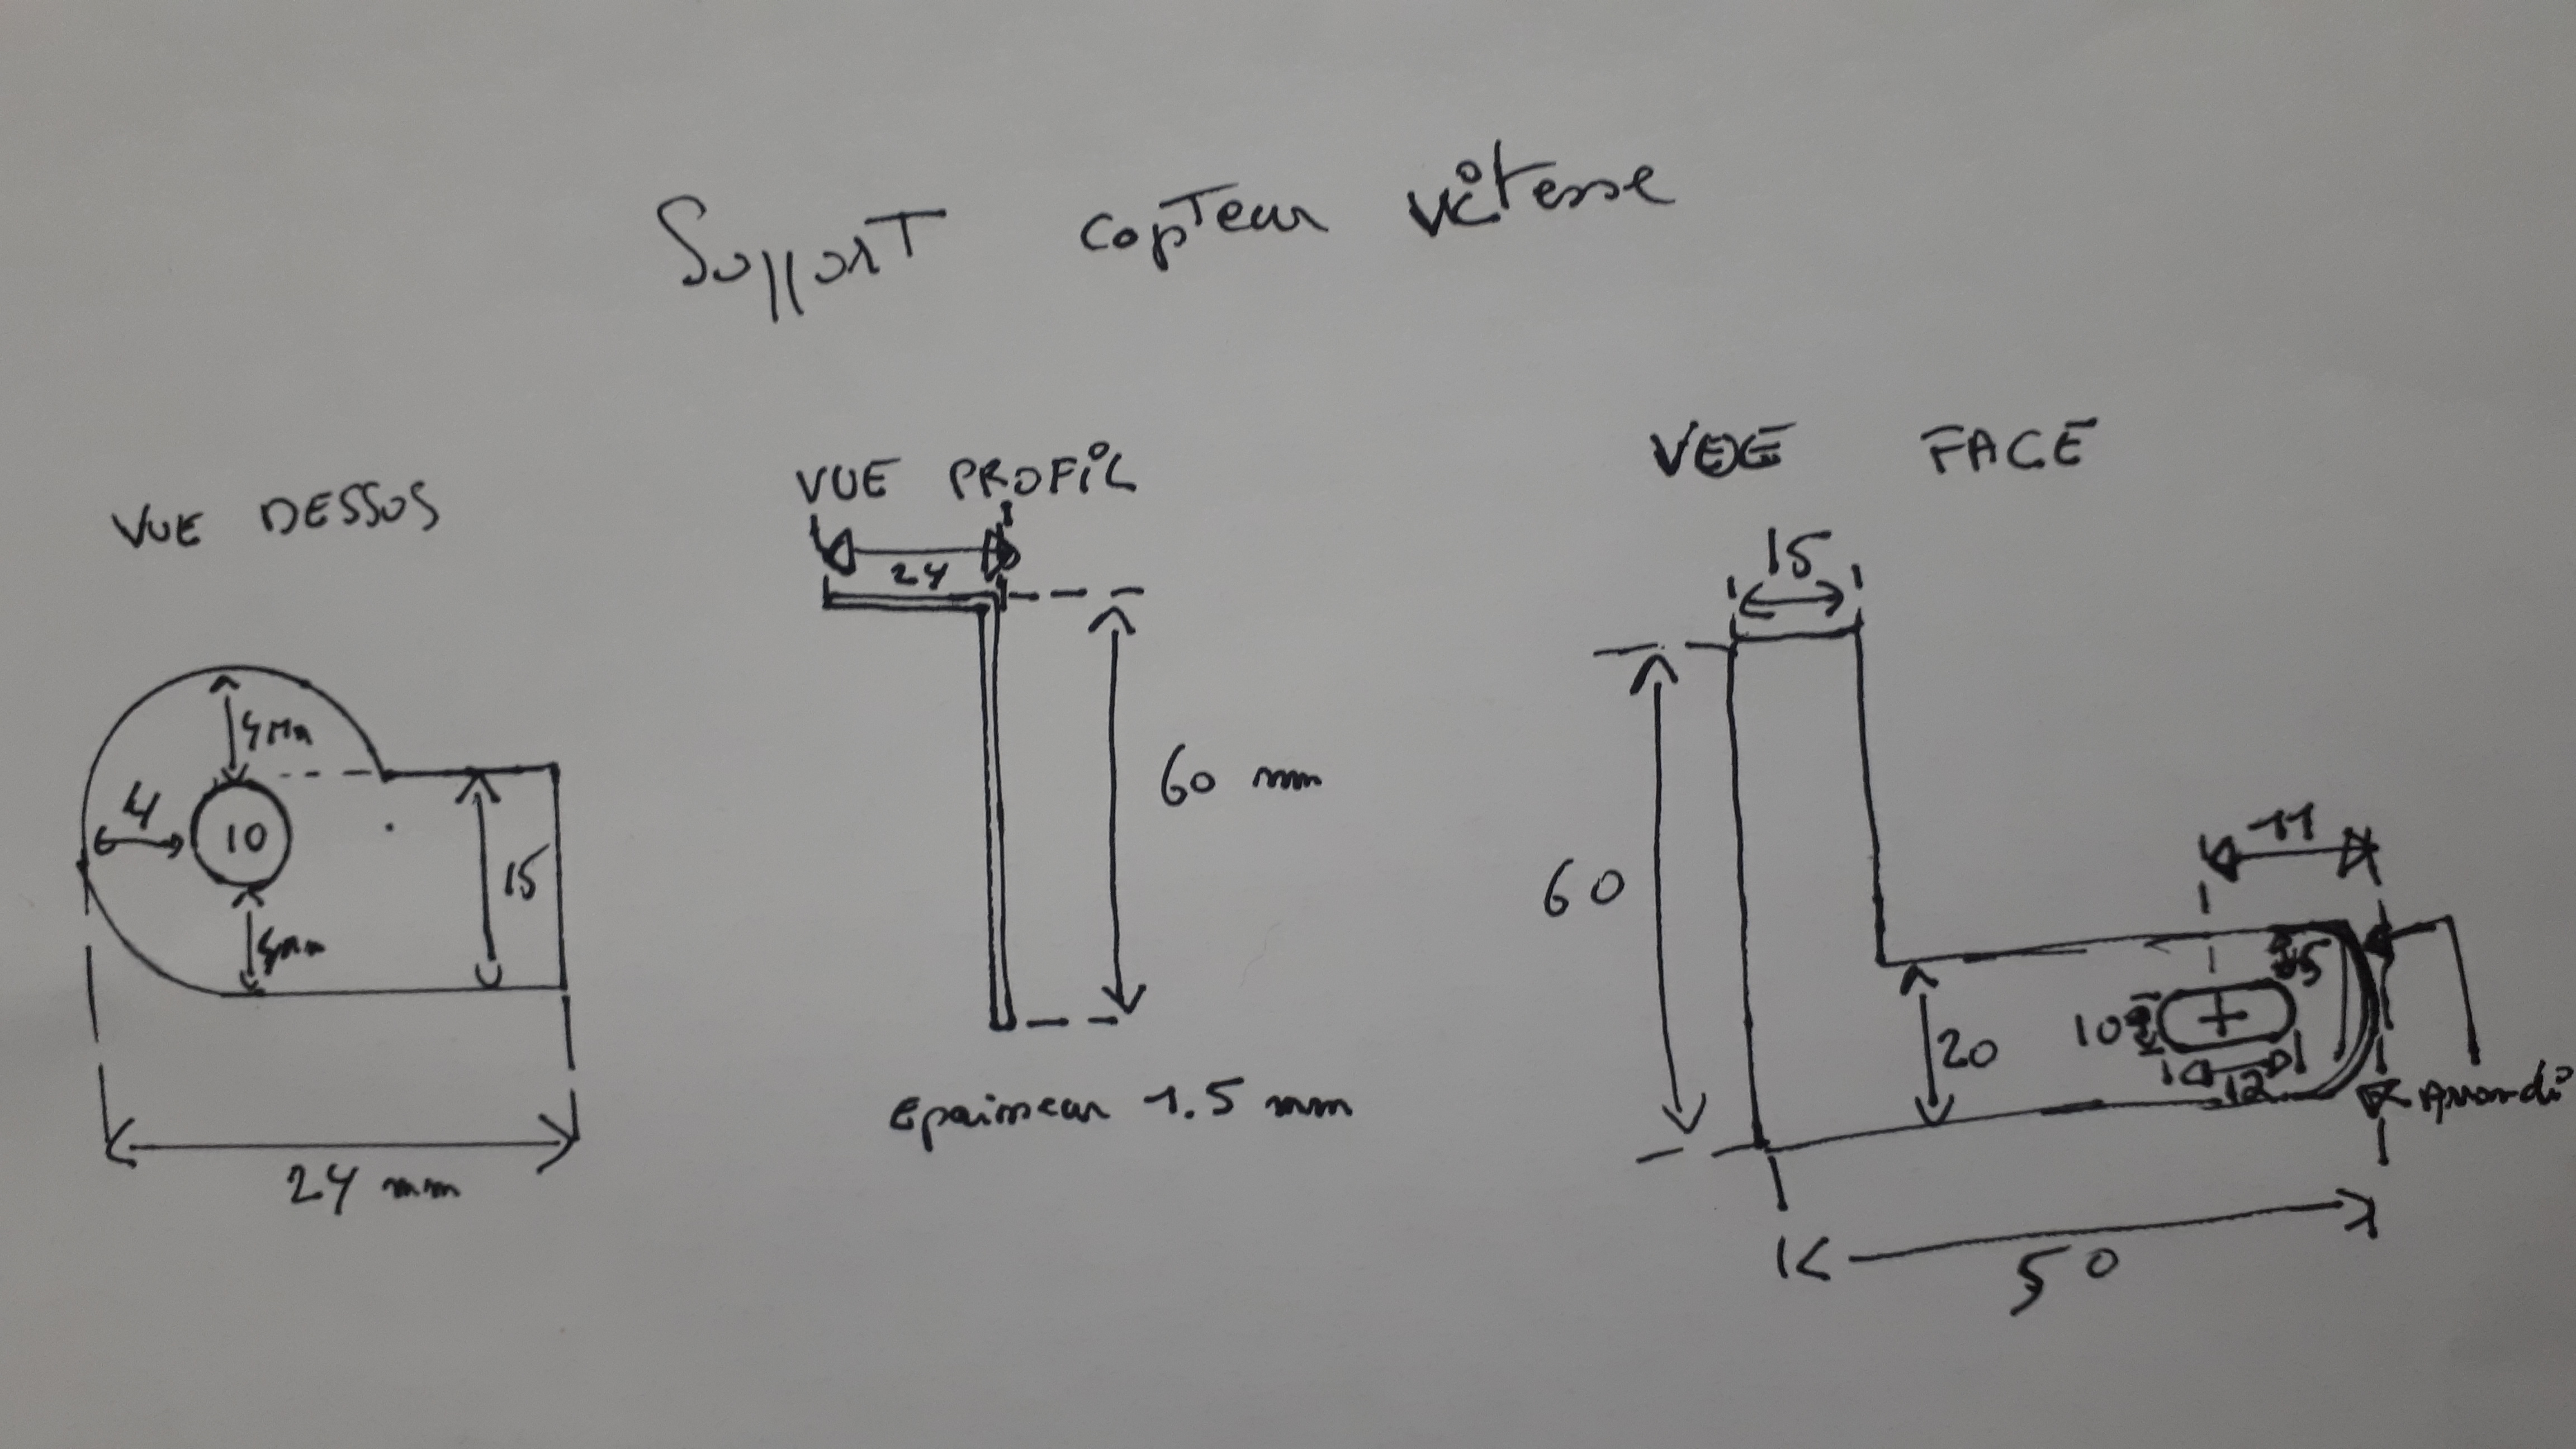 Support capteur vitesse
VUE DESSUS
VUE PROFIL
VUE FACE
24
15
4mm
4
10
15
4mm
24 mm
60 mm
Epaisseur 1.5 mm
60
11
5
10
20
12
Arrondi
50